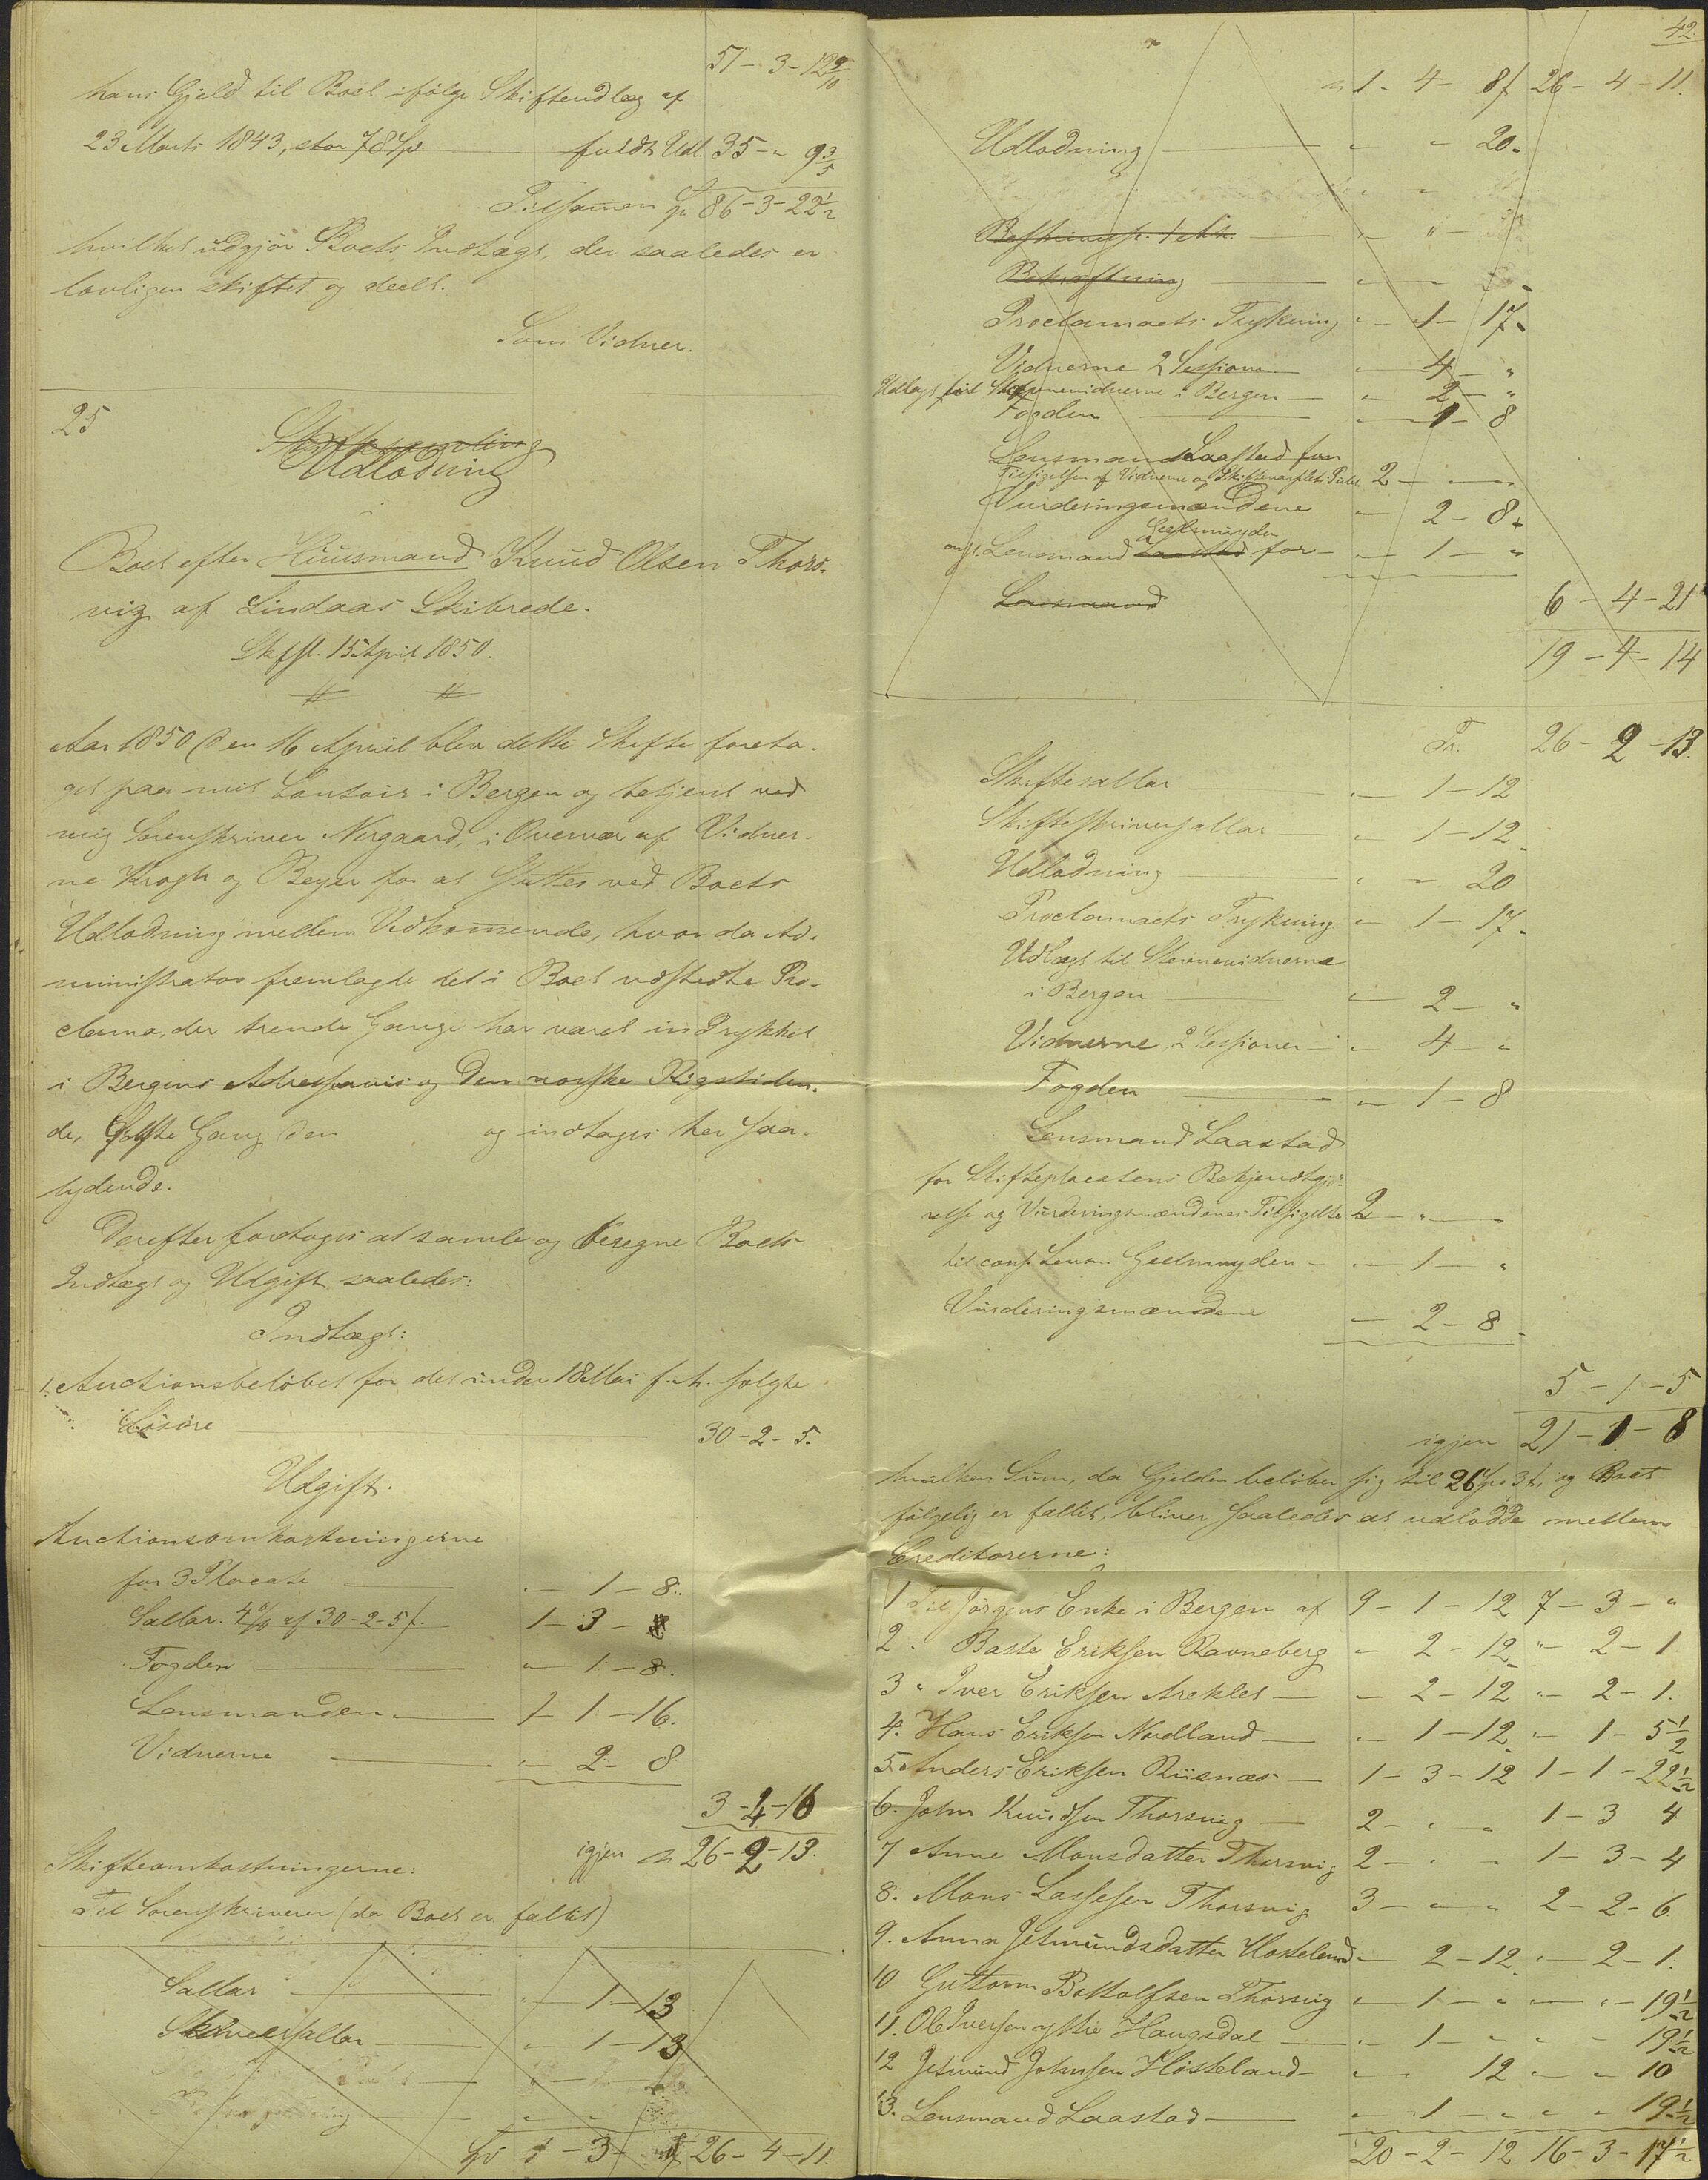 51 - 3 - 12 9/10
hans Gjeld til Boet ifölge Skifteudlæg af
23 Marts 1843, stor 78 Spd. fuldt Udl. 35 - " 9 3/5
Tilsamen Sp 86 - 3 - 22 1/2
hvilket udgjör Boets Indtægt, der saaledes er
lovligen skiftet og deelt.
Som Vidner.
25
Skiftesamling
Udlodning
i
Boet efter Huusmand Knud Olsen Thors-
vig af Lindaas Skibrede.
Skfsl. 15 April 1850.
Aar 1850 den 16 April blev dette Skifte foreta-
get paa mit Contoir i Bergen og betjent ved
mig Sorenskriver Nergaard, i Overvær af Vidner-
ne Krogh og Beyer for at sluttes ved Boets
Udlodning mellem Vedkommende, hvor da Ad-
ministrator fremlagde det i Boet udstedte Pro-
clama, der trende Gange har været indrykket
i Bergens Adresseavis og Den norske Rigstiden-
de, sidste Gang den og indtages her saa-
lydende.
Derefter foretoges at samle og beregne Boets
Indtægt og Udgift saaledes:
Indtægt:
1. Auctionsbelöbet for det under 18 Mai f. A. solgte
Lösöre 30 - 2 - 5.
Udgift.
Auctionsomkostningerne
for 3 Placate " - 1 - 8.
Sallar. 4 % af 30-2-5 f. 1 - 3 - 8
Fogden " - 1 - 8.
Lensmanden 1 - 16.
Vidnerne " - 2 - 8.
3 - 4 - 16
igjen 26 - 2 - 13.
Skifteomkostningerne:
Til Sorenskriveren (da Boet er fallit)
Sallar " - 1 - 13
Skriversallar " - 1 - 13
Sp - 3 - 26 - 4 - 11
42
1 - 4 - 8 f 26 - 4 - 11.
Udlodning " " 20.
Beskrivelse
Bekræftning
Proclamaets Trykning " - 1 - 17.
Vidnerne 2 Sessioner " 4 - "
Udlagt til Stevnevidnerne i Bergen " 2 - "
Fogden " - 1 - 8
Lensmand Laastad for
Tilsigelsen af Vidnerne og Skifteplacatets Publ. 2 - " - "
Vurderingsmændene " 2 - 8.
Geelmuyden
const. Lensmand Laastad for " - 1 - "
Lensmand
6 - 4 - 21
19 - 4 - 14
Tr. 26 - 2 - 13.
Skiftesallar " 1 - 12
Skifteskriversallar " 1 - 12.
Udlodning " " 20
Proclamaets Trykning " 1 - 17.
Udlagt til Stevnevidnerne
i Bergen " 2 - "
Vidnerne 2 Sessioner " 4 - "
Fogden " 1 - 8
Lensmand Laastad
for Skifteplacatens Bekjendtgjö-
relse og Vurderingsmændenes Tilsigelse 2 - " - "
til const. Lensm. Geelmuyden " - 1 - "
Vurderingsmændene " 2 - 8.
5 - 1 - 5
igjen 21 - 1 - 8
hvilken Sum, da Gjelden belöber sig til 26 Sp. 3 f, og Boet
fölgelig er fallit, bliver saaledes at udlodde mellem
Creditorerne:
1 Til Jörgens Enke i Bergen af 9 - 1 - 12 7 - 3 - "
2 " Baste Eriksen Ravneberg " 2 - 12 " - 2 - 1
3 " Iver Eriksen Areklet " 2 - 12 " - 2 - 1.
4. Hans Eriksen Nordland " 1 - 12 " - 1 - 5 1/2
5. Anders Eriksen Riisnæs 1 - 3 - 12 1 - 1 - 22 1/2
6. John Knudsen Thorsvig 2 - " - " 1 - 3 4
7 Anne Monsdatter Thorsvig 2 - " - " 1 - 3 - 4
8. Mons Lassesen Thorsvig 3 - " - " 2 - 2 - 6
9. Anna Jetmundsdatter Hosteland " 2 - 12 " - 2 - 1.
10 Guttorm Bottolfsen Thorsvig " 1 - " " - " - 19 1/2
11. Ole Iversen ytre Haugsdal " 1 - " " " 19 1/2
12 Jetmund Johnsen Hösteland " - 12 " - " 10
13. Lensmand Laastad " 1 - " " " 19 1/2
20 - 2 - 12 16 - 3 - 17 1/2